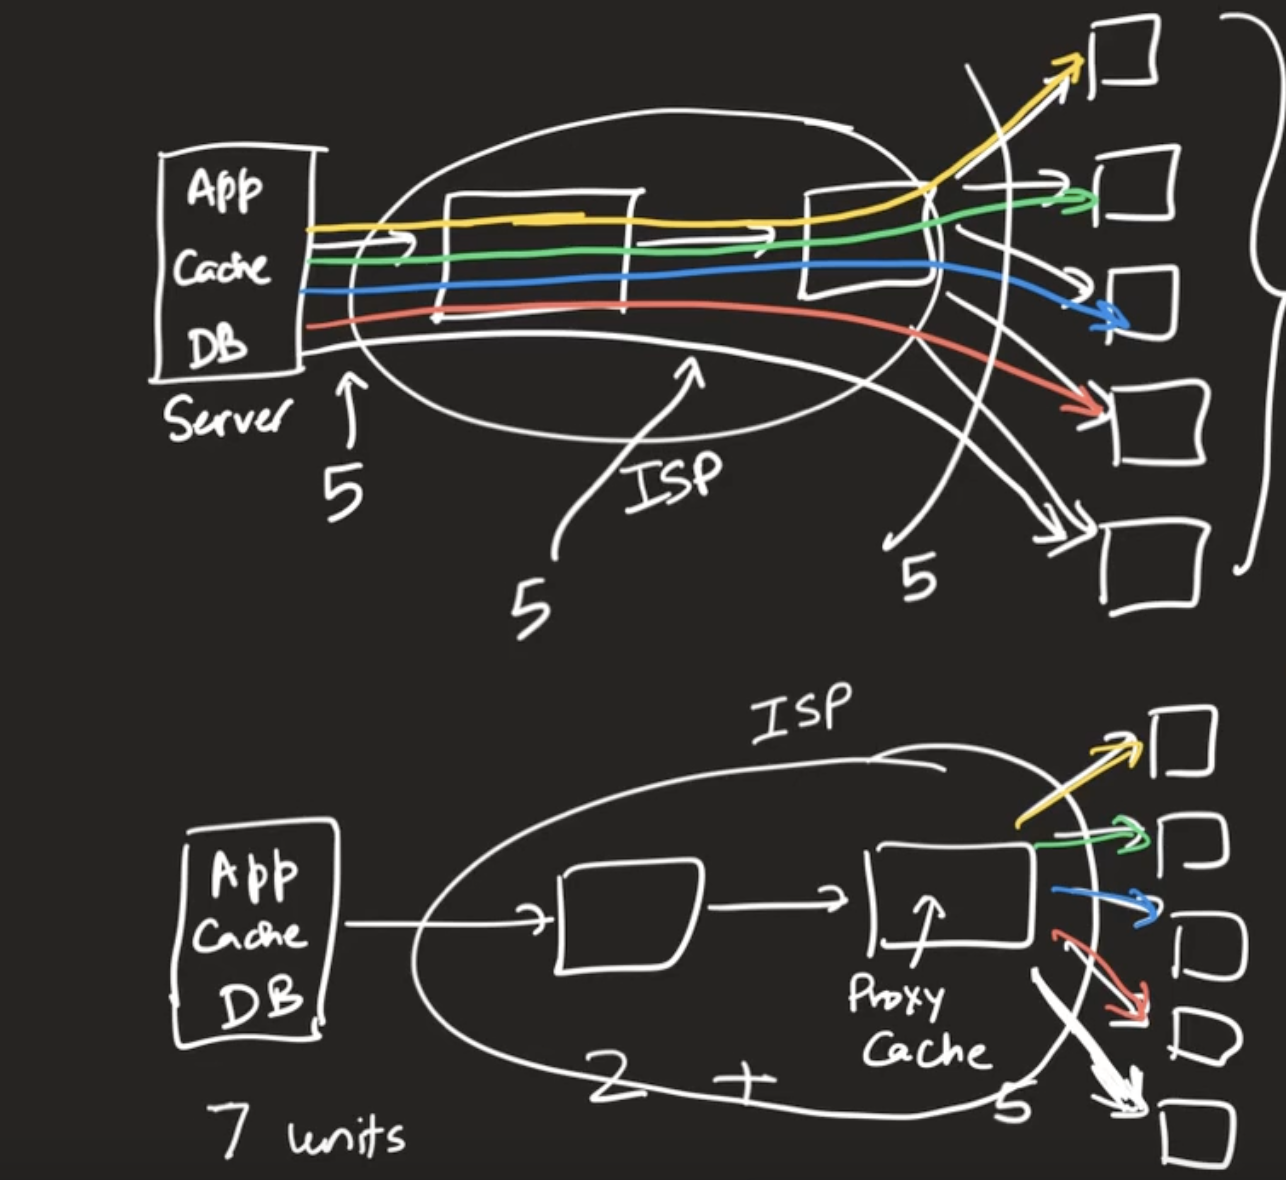 App
Cache
DB
Server
5
ISP
5
5
ISP
App
Cache
DB
Proxy
Cache
2 + 5
7 units